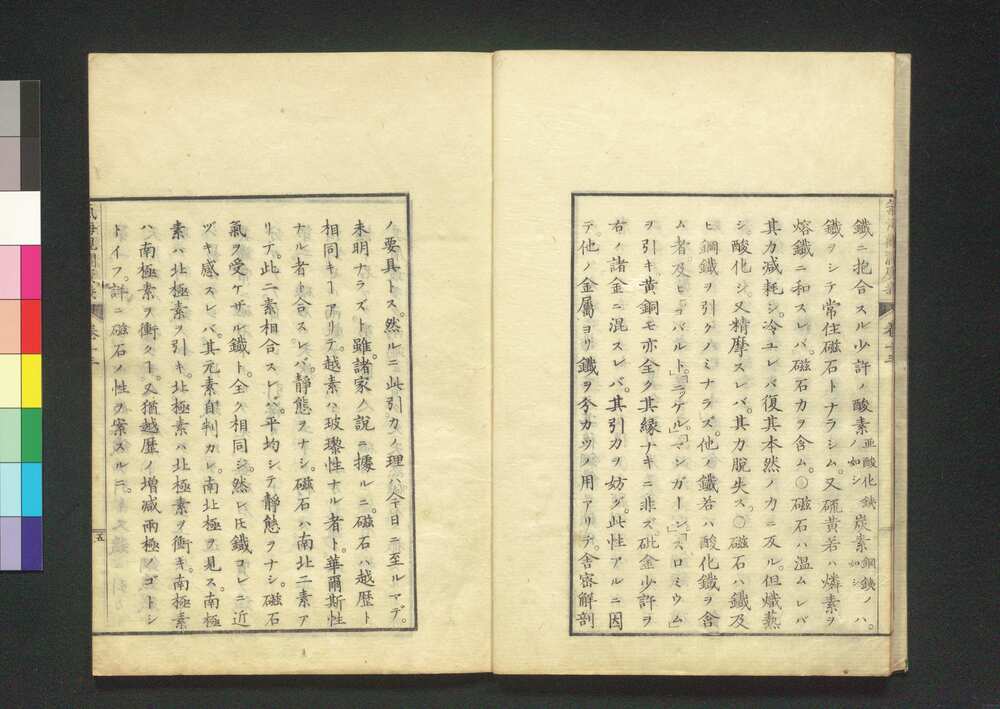 鐵ニ抱合スル少許ノ酸素亜酸化鐵ノ如シ炭素鋼鐵ノ如シハ。
鐵ヲシテ常住磁石トナラシム。又硫黄若ハ燐素ヲ
熔鐵ニ和スレバ。磁石力ヲ含ム。○磁石ハ温ムレバ
其力減耗シ。冷ユレバ復其本然ノ力ニ反ル。但熾熱
シ酸化シ。又精摩スレバ。其力脱失ス。○磁石ハ鐵及
ヒ鋼鐵ヲ引クノミナラズ。他ノ鐵若ハ酸化鐵ヲ含
ム者。及ヒ「コバルト」。「ニッケル」。「マンガーン」。「スロミウム」
ヲ引キ。黄銅モ亦全ク其縁ナキニ非ズ。砒金少許ヲ
右ノ諸金ニ混スレバ。其引力ヲ妨グ。此性アルニ因
テ。他ノ金属ヨリ鐵ヲ分カツノ用アリテ。舎密解剖
ノ要具トス。然ルニ此引力ノ理ハ今日ニ至ルマデ。
未明ナラズト雖。諸家ノ説ニ據ルニ。磁石ハ越歴ト
相同キ𪜈アリテ。越素ハ玻瓈性ナル者ト。華爾斯性
ナル者ト合スレバ。静態ヲナシ。磁石ハ南北二素ア
リテ。此二素相合スレバ。平均シテ静態ヲナシ。磁石
氣ヲ受ケザル鐵ト。全ク相同シ。然レ𪜈鐵コレニ近
ヅキ感スレバ。其元素自判カレ。南北極ヲ見ス。南極
素ハ北極素ヲ引キ。北極素ハ北極素ヲ衝キ。南極素
ハ南極素ヲ衝ク𪜈。又猶越歴ノ増減兩極ノゴトシ
トイフ。詳ニ磁石ノ性ヲ案スルニ。
卷十三
五